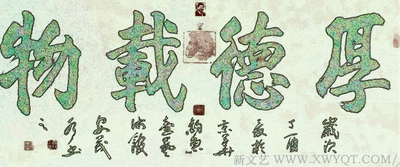 厚德載物
歲次
丁酉
夏於
京華
釣魚
臺藝
術館
新文艺 WWW.XWYQT.COM/